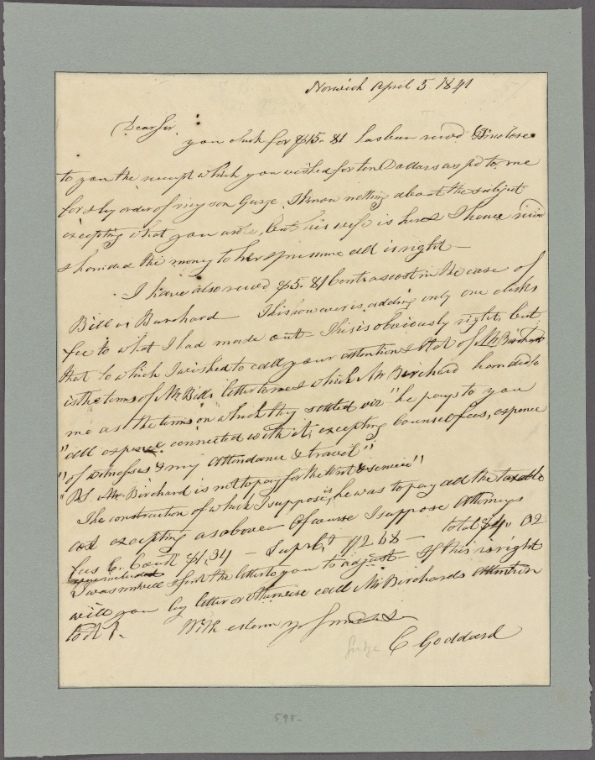 Norwich April 5 1841
Dear Sir,
your check for $15.81 has been recvd I enclose
to you the receipt which you wished for ten Dollars as pd to me
for & by order of my son George, I know nothing about the subject
excepting what you write, but his wife is here & I have
& handed the money to her I presume all is right —
I have also recvd $5.81 Contra cost in the case of
Bill vs Burchard This however is adding only one clerks
fee to what I had made out — This is obviously right, but
that to which I wished to call your attention & that of Mr Birchard
is the terms of Mr Bills letter to me & which Mr Birchard handed to
me as the terms on which they settled viz "he pays to you
"all expence connected with it, excepting Counsel fees, expence
"of Witnesses & my attendance & travel"
"PS Mr Birchard is not to pay for the Writ & service"
The construction of which I suppose is, he was to pay all the taxable
cost excepting as above Of course I suppose Attorneys
fees C. Court $1.34 — Supr Ct $2.68 — total $4.02
I was unwell & sent the letter to you to adjust — If this is right
will you by letter or otherwise call Mr Birchards attention
to it.
With esteem yr friend &c
Judge C Goddard
595.